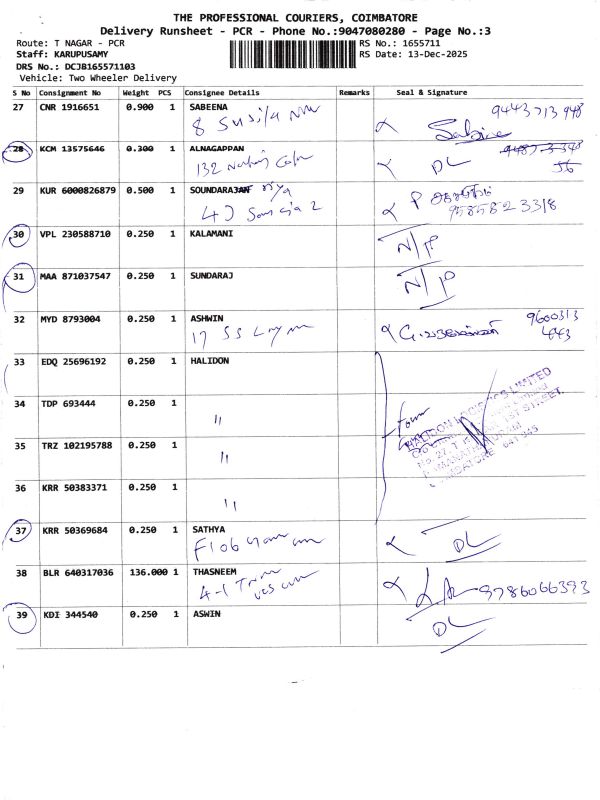 THE PROFESSIONAL COURIERS, COIMBATORE
Delivery Runsheet - PCR - Phone No.:9047080280 - Page No.:3
Route: T NAGAR - PCR
RS No.: 1655711
Staff: KARUPUSAMY
RS Date: 13-Dec-2025
DRS No.: DCJB165571103
Vehicle: Two Wheeler Delivery
S No Consignment No Weight PCS Consignee Details Remarks Seal & Signature
27 CNR 1916651 0.900 1 SABEENA 9443713948
8 Susila
28 KCM 13575646 0.300 1 ALNAGAPPAN
132
DL
56
29 KUR 6000826879 0.500 1 SOUNDARAJAN
4
9585823318
30 VPL 230588710 0.250 1 KALAMANI N/P
31 MAA 871037547 0.250 1 SUNDARAJ N/P
32 MYD 8793004 0.250 1 ASHWIN 9600313
17 SS
443
33 EDQ 25696192 0.250 1 HALIDON
34 TDP 693444 0.250 1 "
HALIDON LOGISTICS LIMITED
35 TRZ 102195788 0.250 1 "
36 KRR 50383371 0.250 1 "
37 KRR 50369684 0.250 1 SATHYA
F106
DL
38 BLR 640317036 136.000 1 THASNEEM
4-1
9786066393
39 KDI 344540 0.250 1 ASWIN DL